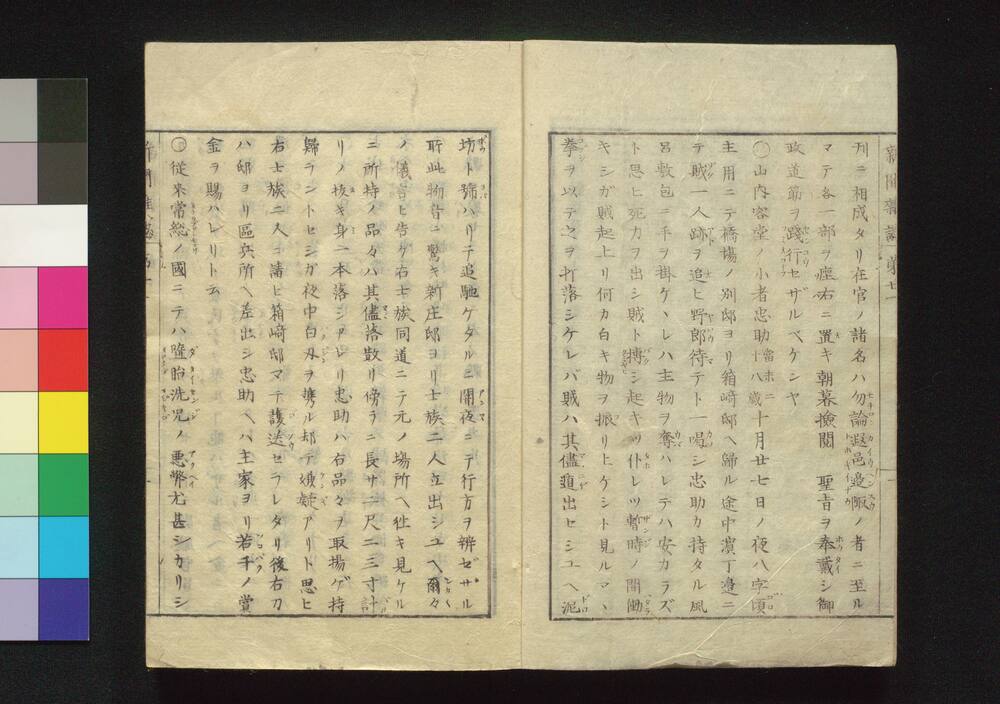 新聞雑誌 第廿一
刋ニ相成タリ在官ノ諸名ハ勿論遐邑邉陬ノ者ニ至ル
マテ各一部ヲ座右ニ置キ朝暮撿閲 聖旨ヲ奉戴シ御
政道筋ヲ踐行セザルベケンヤ
〇山内容堂ノ小者忠助當未ニ十八歳十月廿七日ノ夜八字頃
主用ニテ橋場ノ別邸ヨリ箱﨑邸ヘ歸ル途中濱丁邉ニ
テ賊一人跡ヲ追ヒ野郎待テト一喝シ忠助カ持タル風
呂敷包ニ手ヲ掛ケヽレハ主物ヲ奪ハレテハ安カラズ
ト思ヒ死力ヲ出シ賊ト搏シ起キツ仆レツ暫時ノ間働
キシガ賊起上リ何カ白キ物ヲ振リ上ケシト見ルマヽ
拳ヲ以テ之ヲ打落シケレバ賊ハ其儘逭出セシユヘ泥
坊ト號ハリテ追馳ケタルニ闇夜ニテ行方ヲ辨ゼサル
所此物音ニ驚キ新庄邸ヨリ士族二人立出シユヘ爾々
ノ儀告ヒ告ケ右士族同道ニテ元ノ場所ヘ徃キ見ケル
ニ所持ノ品々ハ其儘落散リ傍ラニ長サ二尺二三寸計
リノ抜キ身一本落シアレリ忠助ハ右品々ヲ取揚ゲ持
歸ラントセシガ夜中白刄ヲ携ル却テ嫌疑アリト思ヒ
右士族二人ニ請ヒ箱﨑邸マテ護送セラレタリ後右刀
ハ邸ヨリ區兵所ヘ差出シ忠助ヘハ主家ヨリ若干ノ賞
金ヲ賜ハレリト云
〇従来常総ノ國ニテハ墮胎洗児ノ悪弊尤甚シカリシ